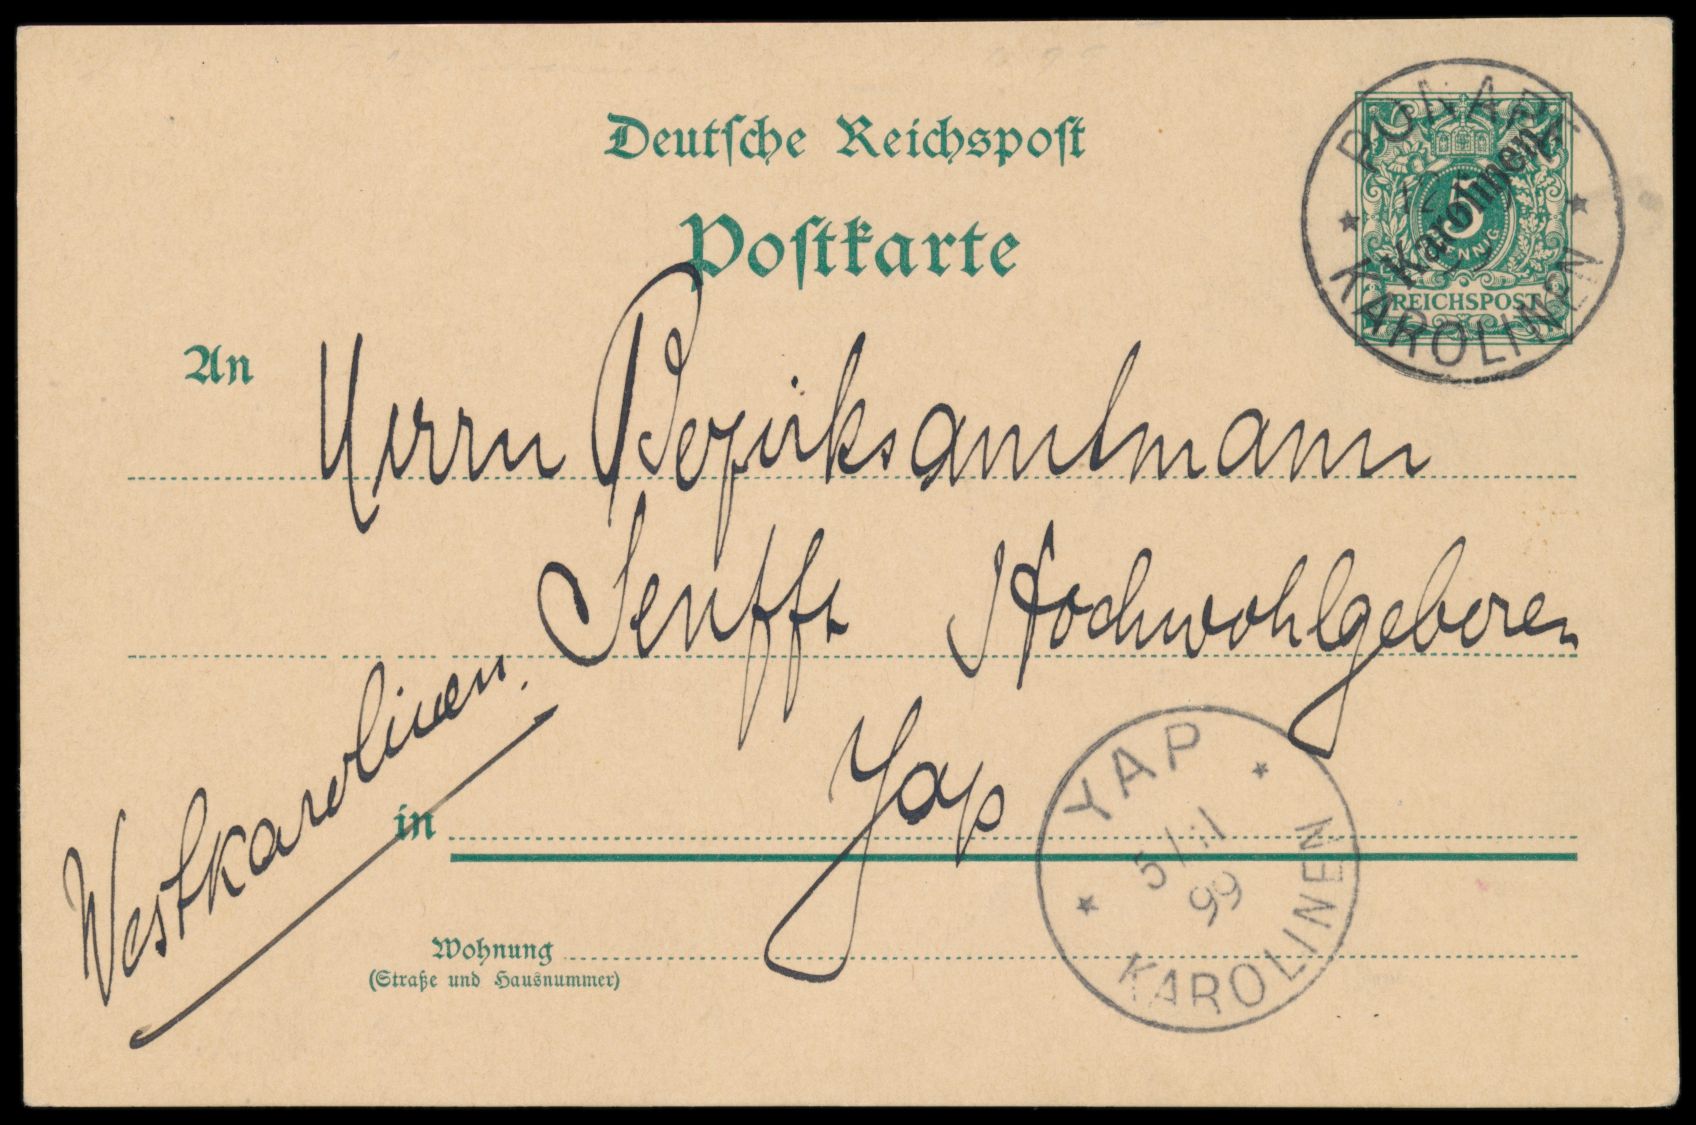 Deutsche Reichspost
Postkarte
PONAPE
KAROLINEN
Karolinen
5
PFENNIG
REICHSPOST
An Herrn Bezirksamtmann
Senfft Hochwohlgeboren
Westkarolinen.
in Yap
YAP
5/11
99
KAROLINEN
Wohnung
(Straße und Hausnummer)